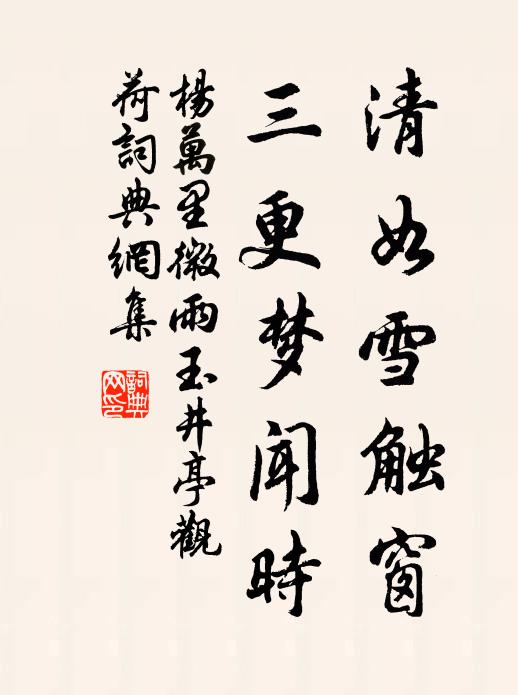 清如雪触窗
三更梦闻時
楊萬里微雨玉井亭觀
荷詞典網集
詞典网印